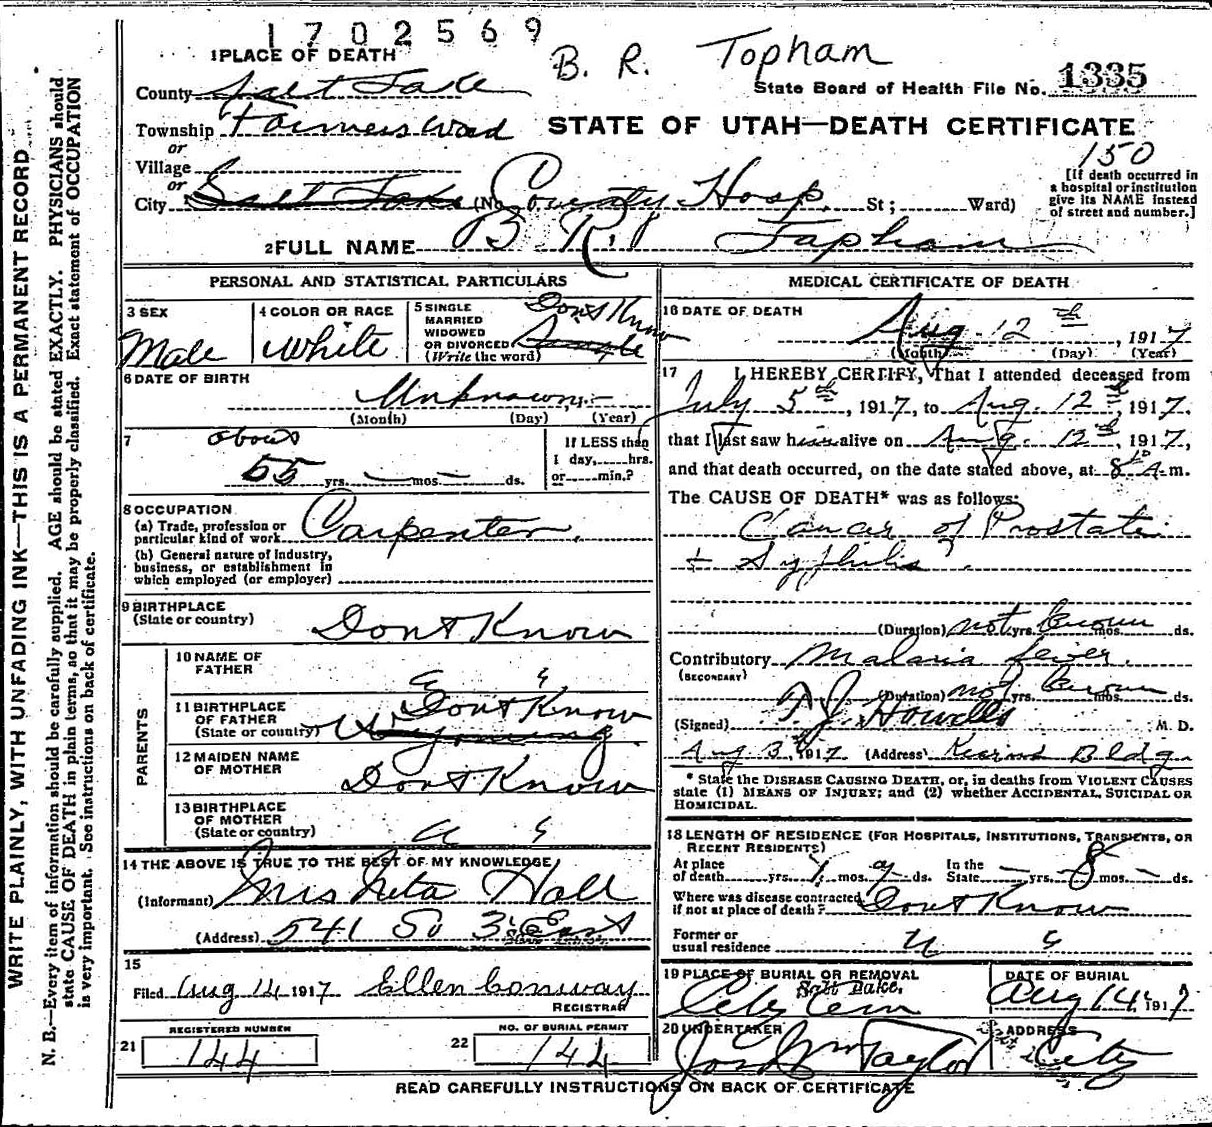 1702569
B. R. Topham
1 PLACE OF DEATH
State Board of Health File No. 1335
County Salt Lake
Township Farmers Ward
STATE OF UTAH—DEATH CERTIFICATE
150
or
Village
or
City Salt Lake (No. County Hosp. St; Ward)
[If death occurred in a hospital or institution give its NAME instead of street and number.]
2 FULL NAME B. R. Topham
PERSONAL AND STATISTICAL PARTICULARS
3 SEX
Male
4 COLOR OR RACE
White
5 SINGLE
MARRIED
WIDOWED
OR DIVORCED
(Write the word)
Dont Know
6 DATE OF BIRTH
Unknown
(Month) (Day) (Year)
7
about
55 yrs. mos. ds.
If LESS than
1 day, hrs.
or min.?
8 OCCUPATION
(a) Trade, profession or
particular kind of work Carpenter.
(b) General nature of industry,
business, or establishment in
which employed (or employer)
9 BIRTHPLACE
(State or country) Dont Know
PARENTS
10 NAME OF
FATHER
11 BIRTHPLACE
OF FATHER
(State or country)
Dont Know
Wyoming
12 MAIDEN NAME
OF MOTHER Dont Know
13 BIRTHPLACE
OF MOTHER
(State or country)
14 THE ABOVE IS TRUE TO THE BEST OF MY KNOWLEDGE
(Informant) Mrs Neta Hall
(Address) 541 So 3rd East
15
Filed Aug 14 1917 Ellen Conway
REGISTRAR
REGISTERED NUMBER
21 144
NO. OF BURIAL PERMIT
22 144
MEDICAL CERTIFICATE OF DEATH
16 DATE OF DEATH
Aug. 12th, 1917
(Month) (Day) (Year)
17 I HEREBY CERTIFY, That I attended deceased from
July 5th, 1917, to Aug. 12th, 1917,
that I last saw him alive on Aug. 12th, 1917,
and that death occurred, on the date stated above, at 8 A.m.
The CAUSE OF DEATH* was as follows:
Cancer of Prostate
+ Syphilis?
(Duration) not yrs. known mos. ds.
Contributory Malaria fever.
(SECONDARY)
(Duration) not yrs. known mos. ds.
(Signed) T. J. Howells M. D.
Aug 13th 1917 (Address) Kearns Bldg.
* State the DISEASE CAUSING DEATH, or, in deaths from VIOLENT CAUSES
state (1) MEANS OF INJURY; and (2) whether ACCIDENTAL, SUICIDAL OR
HOMICIDAL.
18 LENGTH OF RESIDENCE (FOR HOSPITALS, INSTITUTIONS, TRANSIENTS, OR
RECENT RESIDENTS)
At place
of death yrs. mos. ds.
In the
State yrs. 8 mos. ds.
Where was disease contracted
if not at place of death? Dont Know
Former or
usual residence
19 PLACE OF BURIAL OR REMOVAL
Salt Lake.
City Cem
DATE OF BURIAL
Aug 14, 1917
20 UNDERTAKER
Jos Wm Taylor
ADDRESS
City
READ CAREFULLY INSTRUCTIONS ON BACK OF CERTIFICATE
WRITE PLAINLY, WITH UNFADING INK—THIS IS A PERMANENT RECORD
N. B.—Every item of information should be carefully supplied. AGE should be stated EXACTLY. PHYSICIANS should
state CAUSE OF DEATH in plain terms, so that it may be properly classified. Exact statement of OCCUPATION
is very important. See instructions on back of certificate.